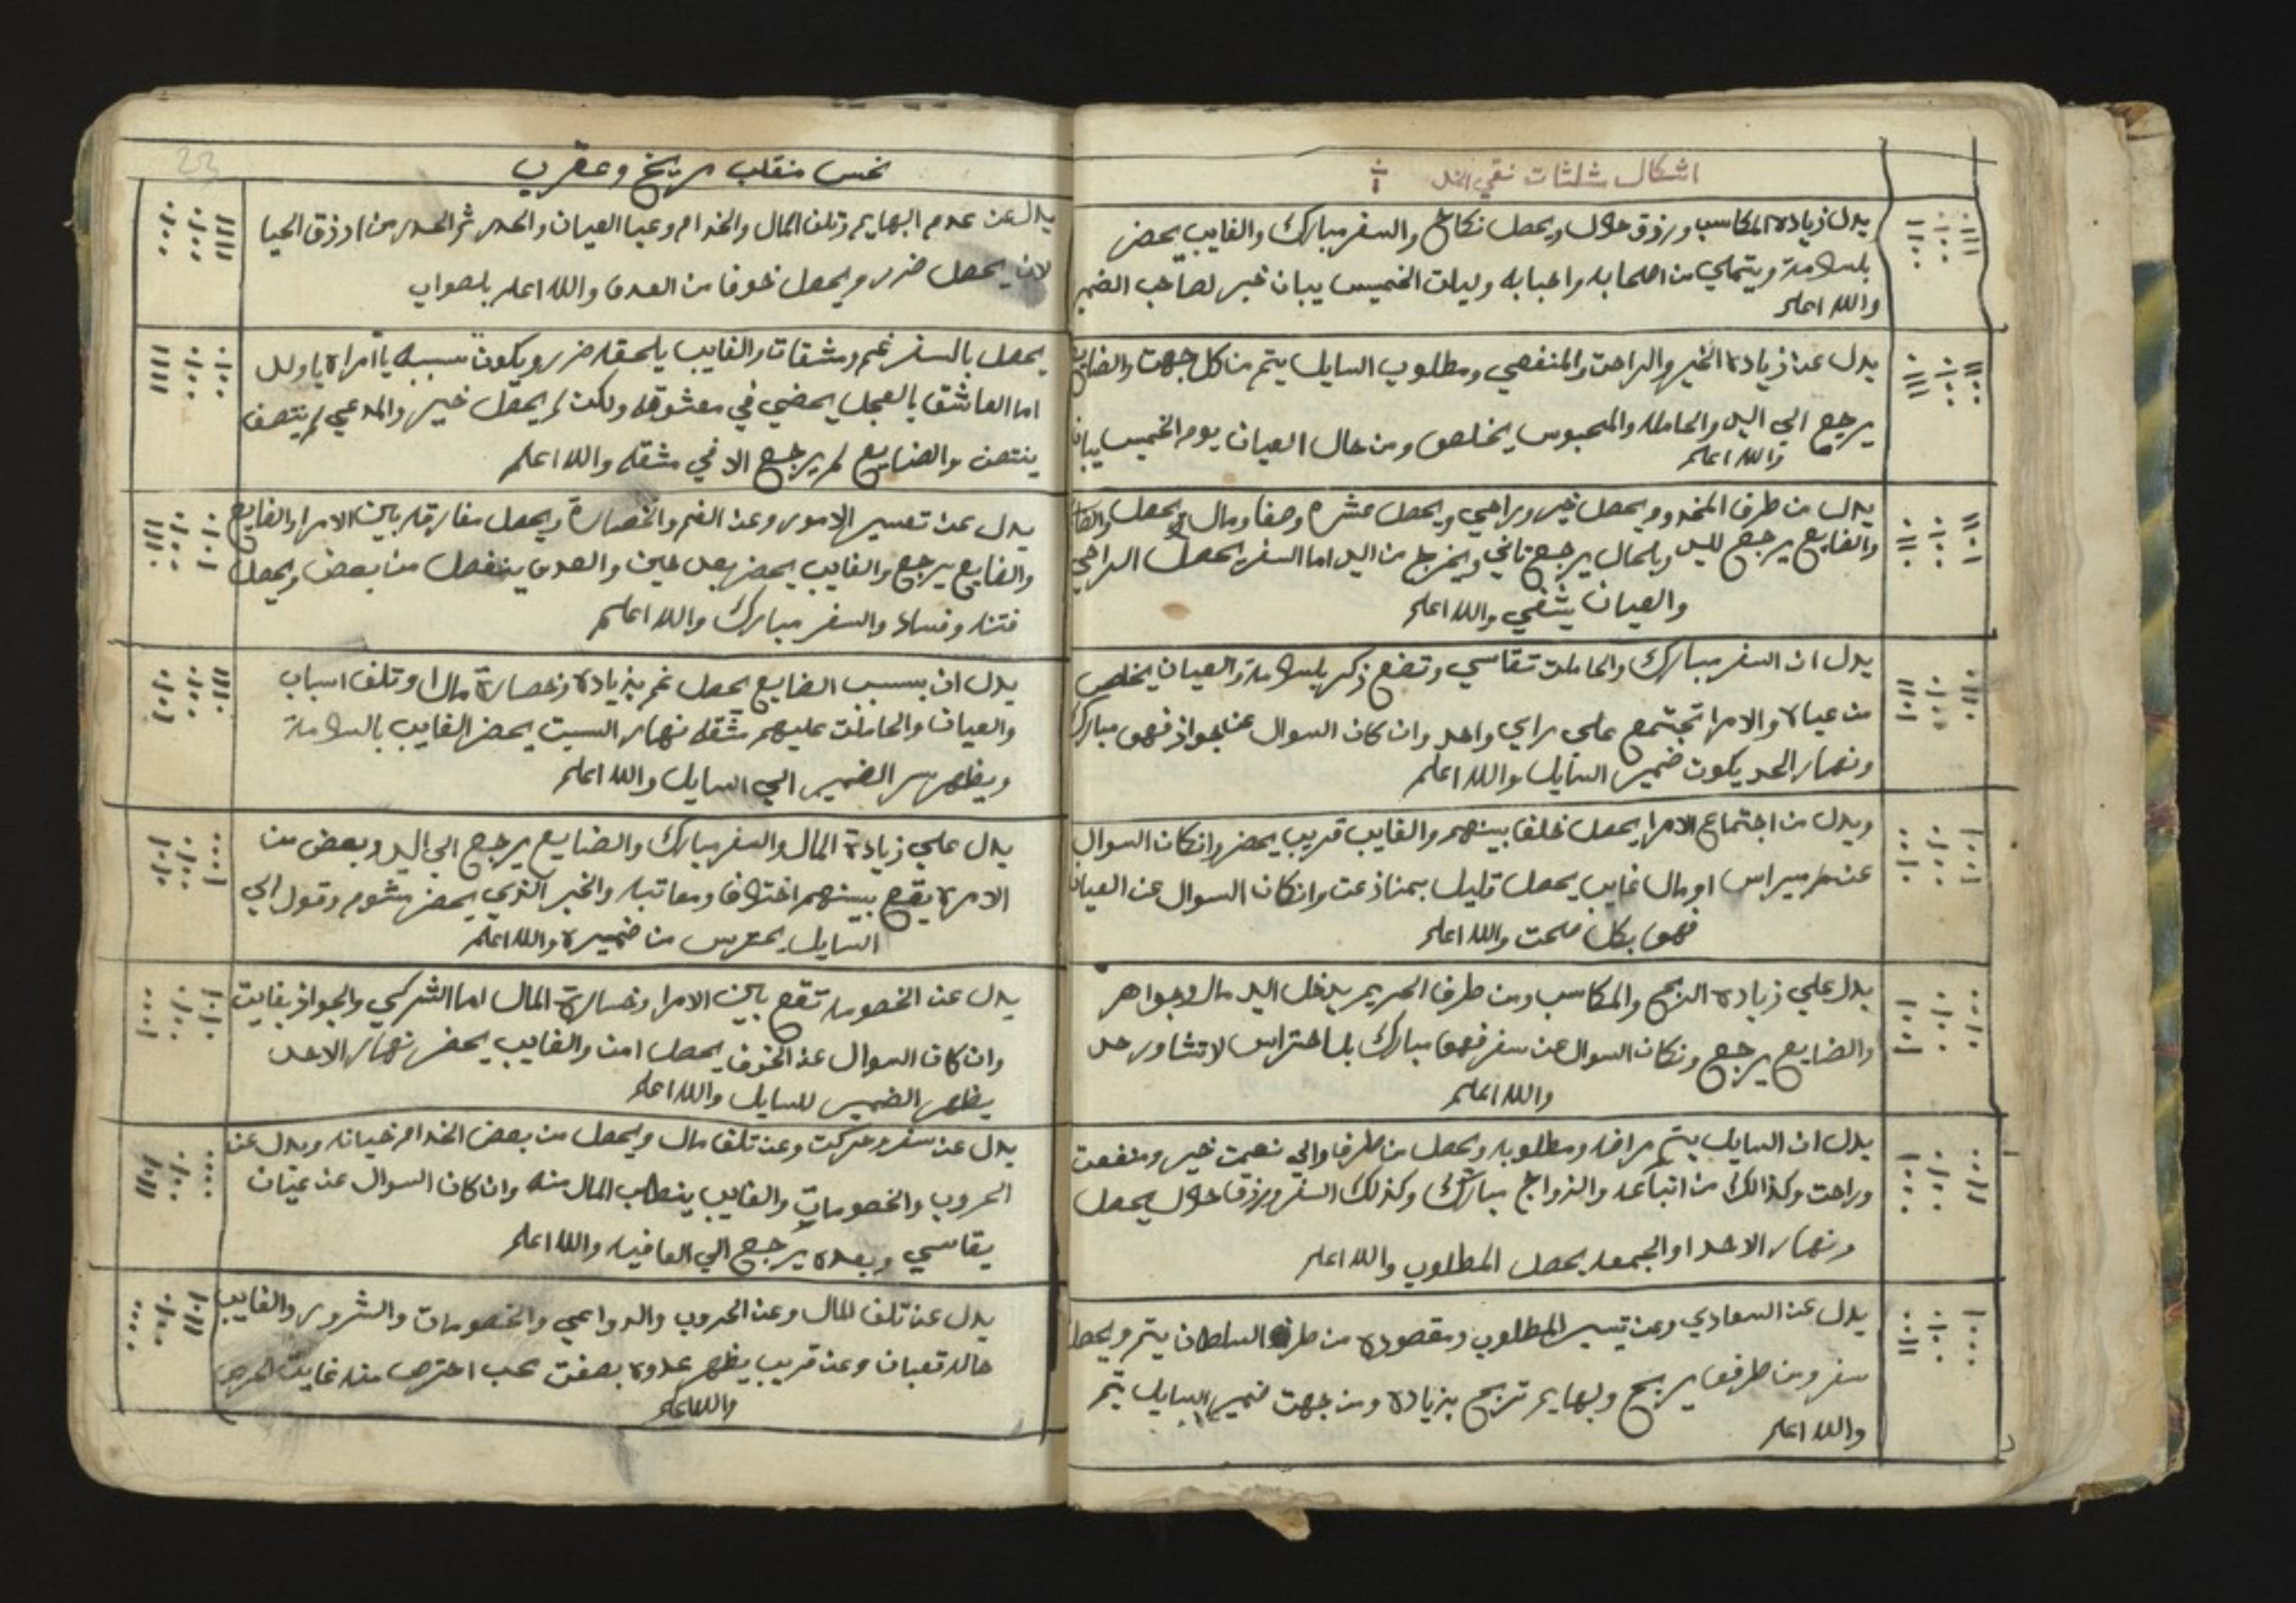 اشكال شلثات نقي الخد
يدل زيادة المكاسب ورزق حلال ويحصل نكاح والسفر مبارك والغايب يحضر
بلسلامة ويتملي من اصحابه واحبابه وليلت الخميس يبان خبر لصاحب الضمير
والله اعلم
يدل عن زيادة الخير والراحت والمنفعي ومطلوب السايل يتم من كل جهت والضايع
يرجع الي اليد والحامله والمحبوس يخلص ومن حال العيان يوم الخميس يبان
والله اعلم
يدل من طرف المخدو ويحصل خير وراحي ويحصل عشره وصفا ومال ويحصل
والضايع يرجع لليد وبلحال يرجع تاني ويخرج من اليد اما السفر يحصل الراحي
والعيان يشفي والله اعلم
يدل ان السفر مبارك والحاملت تقاسي وتضع ذكر بلسلامة والعيان يخلص
من عياه والامرا تجتمع علي راي واحد وان كان السوال عن جواز فهو مبارك
ونهار الحد يكون ضمير السايل والله اعلم
ويدل من اجتماع الامرا يحصل خلف بينهم والغايب قريب يحضر وانكان السوال
عن ميراس او مال غايب يحصل قليل بمنازعت وانكان السوال عن العيان
فهو بكل صحت والله اعلم
يدل علي زيادة الربح والمكاسب ومن طرف الحريم يدخل اليد مال وجواهر
والضايع يرجع ونكان السوال عن سفر فهو مبارك بلا احتراس لا تشاور حد
والله اعلم
يدل ان السايل يتم مرافه ومطلوبه ويحصل من طرف والي نعمت خير ومنفعت
وراحت وكذالك من اتباعه والزواج مبارك وكذلك السفر ورزق حلال يحصل
ونهار الاحد او الجمعه يحصل المطلوب والله اعلم
يدل عن السعادي وعن تيسير المطلوب ومقصوده من طرف السلطان يتم ويحصل
سفر ومن طرفه يربح وبهايم تربح بزيادة ومن جهت ضمير السايل يتم
والله اعلم
23
نحس منقلب مريخ وعقرب
يدل عن عدم البهايم وتلف المال والخدام وعيا العيان والحدر ثم الحدر من ارزق الحيا
لان يحصل ضرر ويحصل خوف من العدو والله اعلم بلصواب
يحصل بالسفر غم ومشقات والغايب يلحقه ضرر ويكون سببه يا امراه يا ولد
اما العاشق بالعجل يحضي في معشوقه ولكن لم يحصل خير والمدعي لم ينتصف
ينتصف والضايع لم يرجع الا في مشقه والله اعلم
يدل عن تعسير الامور وعن الغم والخصارة ويحصل مفارقه بين الامرا والضايع
والضايع يرجع والغايب يحضر بعد حين والعدو ينفصل من بعض ويحصل
فتنه وفساد والسفر مبارك والله اعلم
يدل ان بسبب الضايع يحصل غم بزيادة وخصارة مال وتلف اسباب
والعيان والحاملت عليهم مشقه نهار السبت يحضر الغايب بالسلامة
ويظهر سر الضمير الي السايل والله اعلم
يدل علي زيادة المال والسفر مبارك والضايع يرجع الي اليد وبعض من
الامرة يقع بينهم اختلاف ومعاتبه والخبر الذي يحضر مشوم وقول الي
السايل يحترس من ضميره والله اعلم
يدل عن الخصومه تقع بين الامرا وخسارة المال اما الشركي والجواز بغايت
وان كان السوال عن الخوف يحصل امن والغايب يحضر نهار الاحد
يظهر الضمير للسايل والله اعلم
يدل عن سفر وحركت وعن تلف مال ويحصل من بعض الخدام خيانه ويدل عن
الحروب والخصومات والغايب ينطلب المال منه وان كان السوال عن عيان
يقاسي وبعده يرجع الي العافيه والله اعلم
يدل عن تلف المال وعن الحروب والدواعي والخصومات والشرور والغايب
حاله تعبان وعن قريب يظهر عدوه بصفت محب احترص منه غايت الحرص
والله اعلم